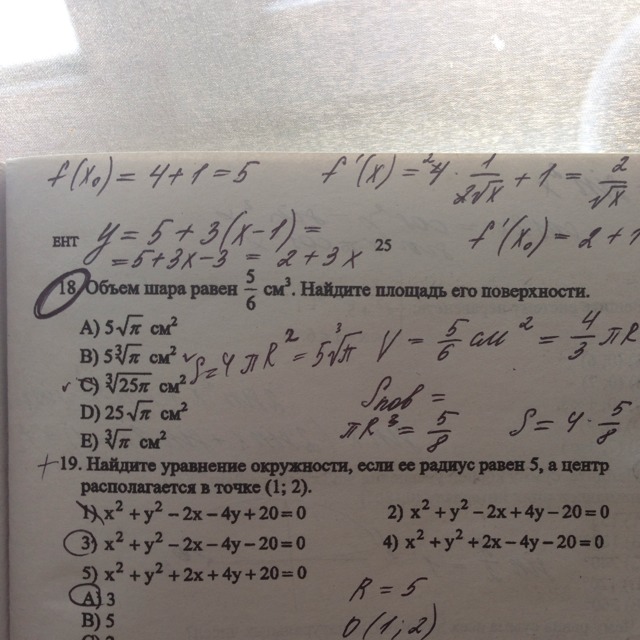 f(x₀) = 4+1 = 5 f'(x) = ²4 · 1/(2√x) + 1 = 2/√x
y = 5 + 3(x-1) =
ЕНТ 25 f'(x₀) = 2+1
= 5+3x-3 = 2+3x
18. Объем шара равен 5/6 см³. Найдите площадь его поверхности.
A) 5√π см²
B) 5∛π см² S = 4πR² = 5∛π V = 5/6 см² = 4/3 πR
C) ∛25π см²
D) 25√π см² Sпов =
E) ∛π см² πR³ = 5/8 S = 4 · 5/8
+ 19. Найдите уравнение окружности, если ее радиус равен 5, а центр
располагается в точке (1; 2).
1) x² + y² − 2x − 4y + 20 = 0 2) x² + y² − 2x + 4y − 20 = 0
3) x² + y² − 2x − 4y − 20 = 0 4) x² + y² + 2x − 4y − 20 = 0
5) x² + y² + 2x + 4y + 20 = 0
A) 3 R = 5
B) 5 O(1; 2)